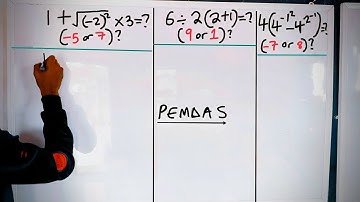 1 + √(-2)² × 3 = ?
(-5 or 7)?
1
6 ÷ 2(2+1) = ?
(9 or 1)?
PEMDAS
4(4^-1² - 4^2^-1) = ?
(-7 or 8)?